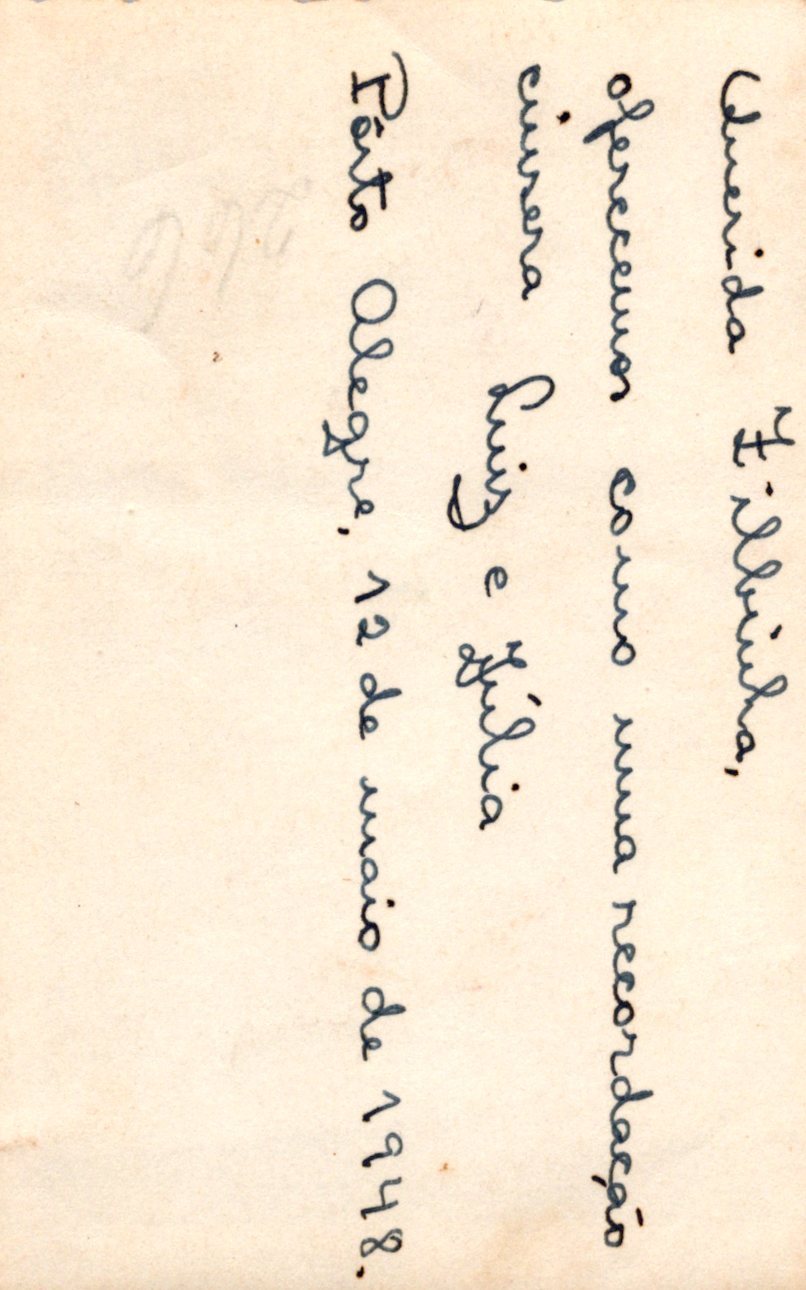 Querida Filhinha,
oferecemos como uma recordação
cincera
Luiz e Júlia
Pôrto Alegre, 12 de maio de 1948.